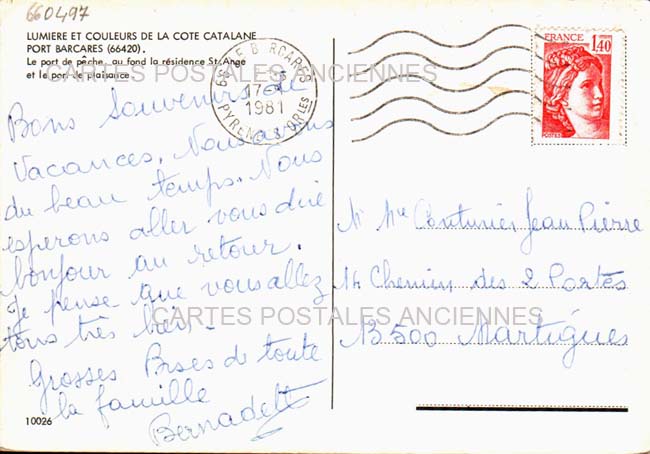 660497
LUMIERE ET COULEURS DE LA COTE CATALANE
PORT BARCARES (66420).
Le port de pêche, au fond la résidence St. Ange
et le port de plaisance
CARTES POSTALES ANCIENNES
Bons Souvenirs de
Vacances. Nous avons
du beau temps. Nous
esperons aller vous dire
bonjour au retour.
Je pense que vous allez
tous très bien.
Grosses Bises de toute
la famille
Bernadette
10026
66 LE BARCARES
17-8
1981
PYRENEES ORles
FRANCE
1,40
POSTES
M Me Couturier Jean Pierre
14 Chemin des 2 Portes
13500 Martigues
CARTES POSTALES ANCIENNES